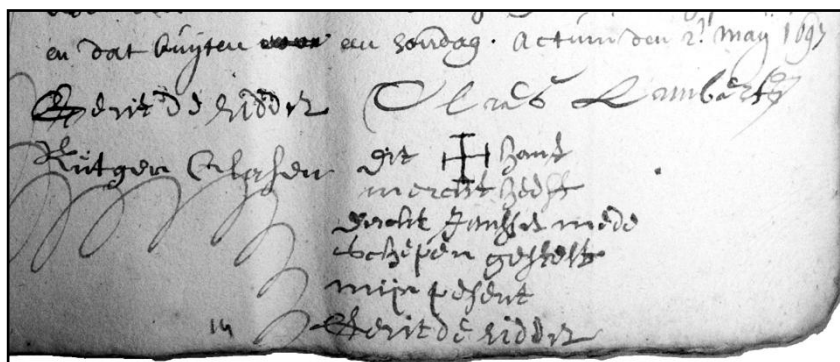 en dat buÿten een sondag. Actum den 2. Maÿ 1697
Gerit de ridder Claes Lambertz
Rutger Clasen dit hant
merckt heeft
derck Jansse mede
schepen gestelt
mijn pesent
Gerit de ridder